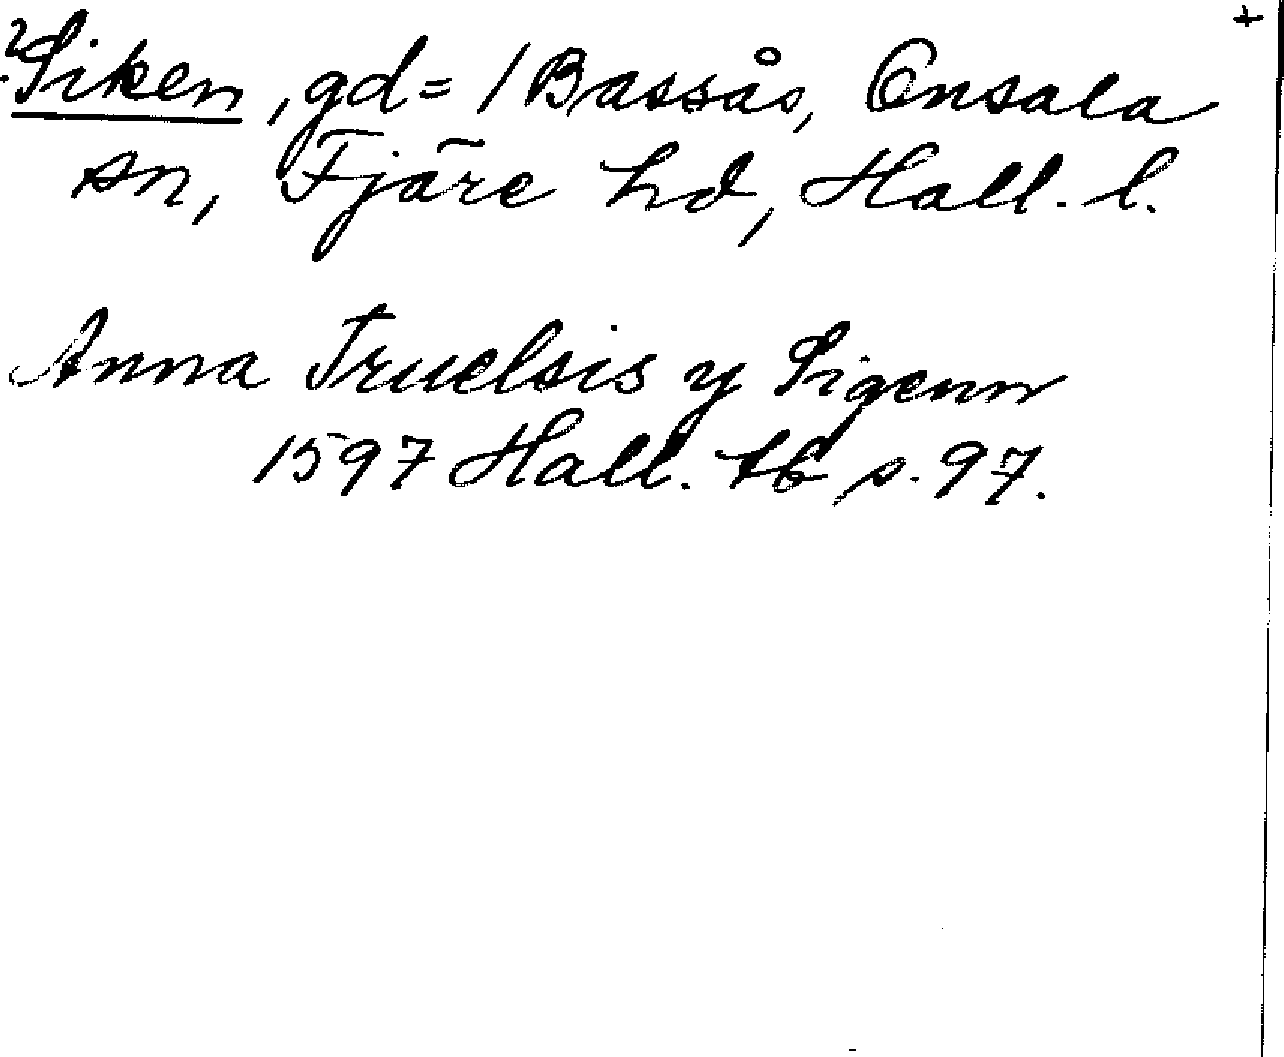 +
?Siken, gd = / Bassås, Onsala
sn, Fjäre hd, Hall. l.
Anna Truelsis y Sigenn
1597 Hall. tb s. 97.